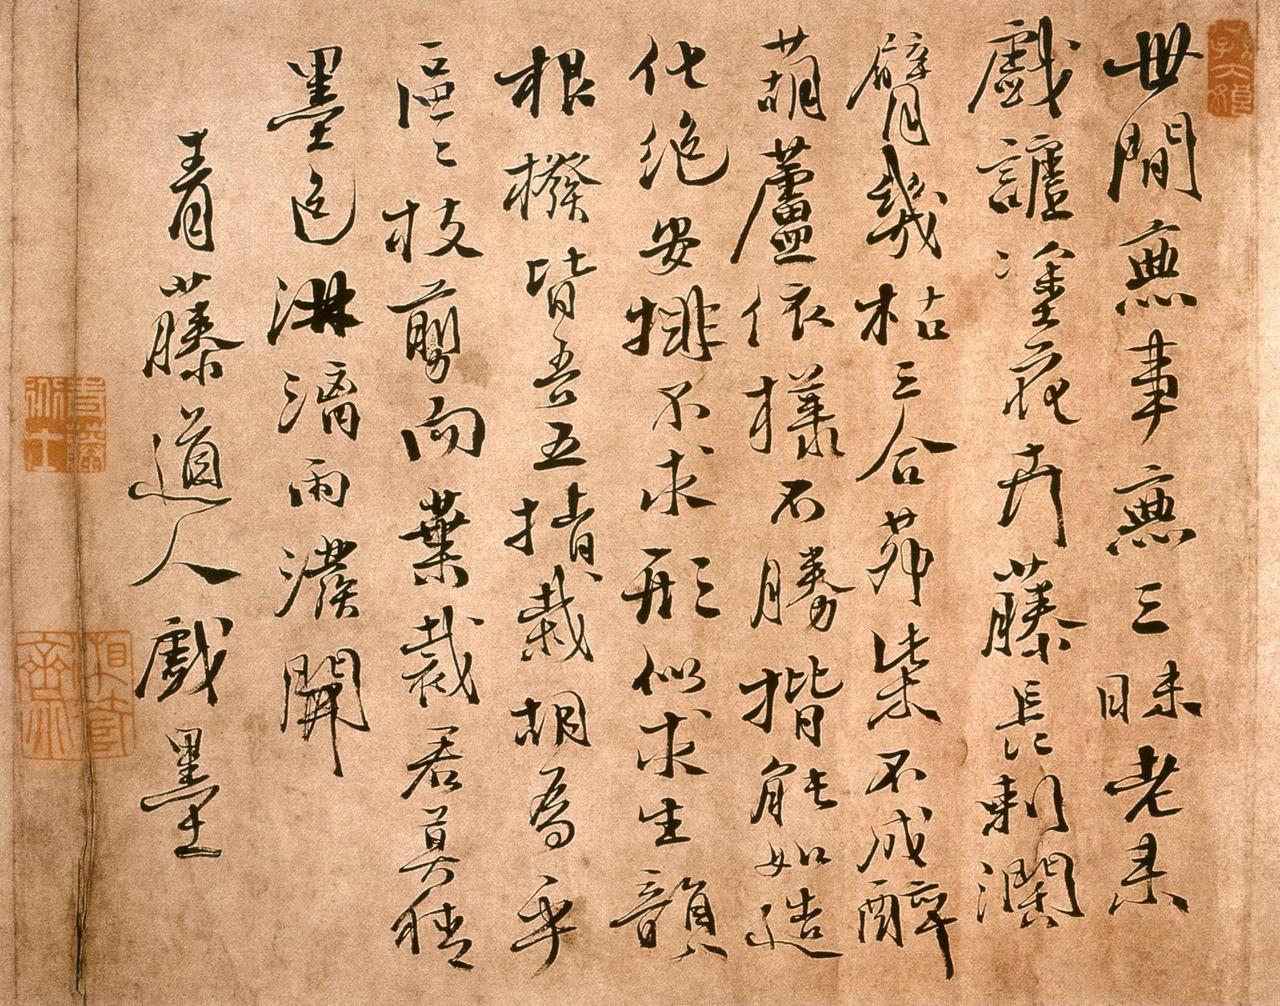 世間無事無三昧老來
戲謔塗花卉藤長刺濶
臂幾枯三合茅柴不成醉
葫蘆依樣不勝揩能如造
化絕安排不求形似求生韻
根撥皆吾五指栽胡為乎
區〻枝剪而葉裁君莫猜
墨色淋漓雨潑開
青藤道人戲墨